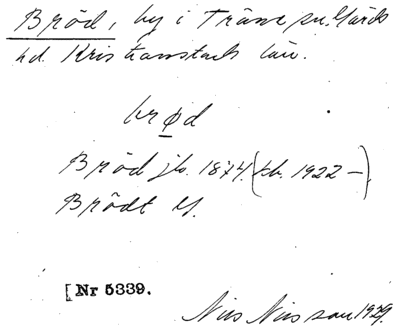 Bröd, by i Träne sn. Gärds
hd. Kristianstads län.
brød
Bröd jb. 1874 (kb. 1922 –).
Brödt
[Nr 5339.
Nils Nilsson 1929.